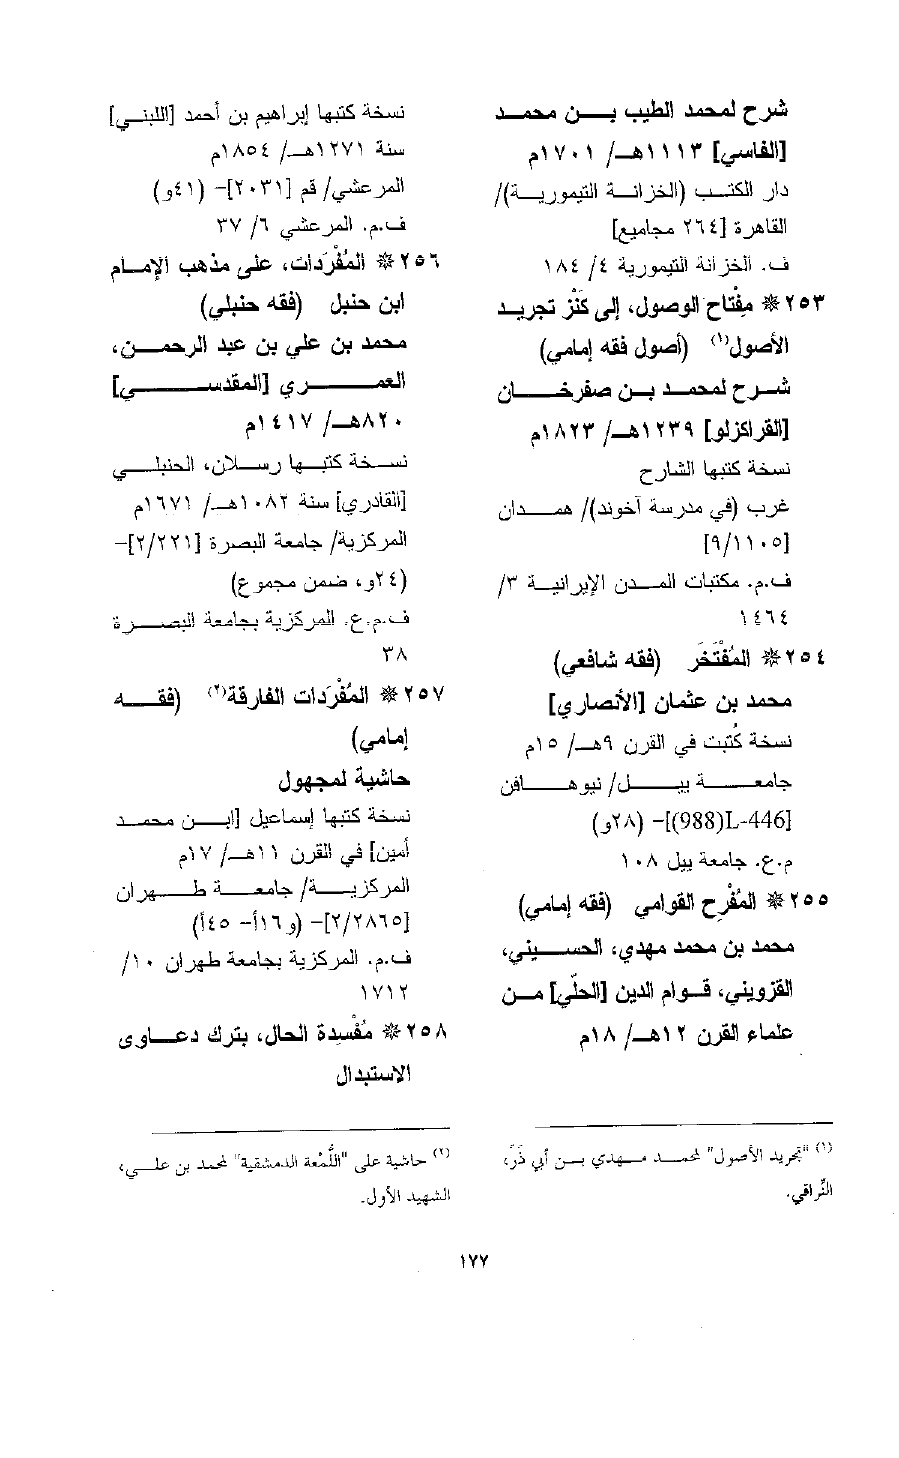 شرح لمحمد الطيب بـــن محمـــد
[الفاسي] ١١١٣هـ/ ١٧٠١م
دار الكتـــب (الخزانـة التيموريـة)/
القاهرة [٢٦٤ مجاميع]
ف. الخزانة التيمورية ٤/ ١٨٤
٢٥٣ * مِفْتاح الوصول، إلى كَنْز تجريـد
الأصول(١) (أصول فقه إمامي)
شـرح لمحمـد بـن صفرخـــان
[القراكزلو] ١٢٣٩هـ/ ١٨٢٣م
نسخة كتبها الشارح
غرب (في مدرسة آخوند)/ همـــدان
[٩/١١٠٥]
ف.م. مكتبات المـدن الإيرانيـة ٣/
١٤٦٤
٢٥٤ * المُفْتَخَر (فقه شافعي)
محمد بن عثمان [الأنصاري]
نسخة كُتبت في القرن ٩هـ/ ١٥م
جامعــــــة ييـــل/ نيوهـــافن
[L-446(988)]- (٢٨و)
م.ع. جامعة ييل ١٠٨
٢٥٥ * المُفْرِح القوامي (فقه إمامي)
محمد بن محمد مهدي، الحســيني،
القزويني، قـوام الدين [الحلّي] مـن
علماء القرن ١٢هـ/ ١٨م
(١) "تجريد الأصول" لمحمـد مـهدي بـن أبي ذَرّ،
النَّراقي.
نسخة كتبها إبراهيم بن أحمد [اللبنـي]
سنة ١٢٧١هـ/ ١٨٥٤م
المرعشي/ قم [٢٠٣١]- (٤١و)
ف.م. المرعشي ٦/ ٣٧
٢٥٦ * المُفْرَدات، على مذهب الإمـام
ابن حنبل (فقه حنبلي)
محمد بن علي بن عبد الرحمـــن،
العمـــــري [المقدســــــي]
٨٢٠هـ/ ١٤١٧م
نسـخة كتبـها رسـلان، الحنبلـي
[القادري] سنة ١٠٨٢هـ/ ١٦٧١م
المركزية/ جامعة البصرة [٢/٢٢١]-
(٢٤و، ضمن مجموع)
ف.م.ع. المركزية بجامعة البصـــرة
٣٨
٢٥٧ * المُفْرَدات الفارقة(٢) (فقـــه
إمامي)
حاشية لمجهول
نسخة كتبها إسماعيل [ابـــن محمـد
أمين] في القرن ١١هـ/ ١٧م
المركزيـــة/ جامعـــة طـــهران
[٢/٢٨٦٥]- (و١٦أ- ٤٥أ)
ف.م. المركزية بجامعة طهران ١٠/
١٧١٢
٢٥٨ * مُفْسِدة الحال، بترك دعـاوى
الاستبدال
(٢) حاشية على "اللُّمْعة الدمشقية" لمحمد بن علـي،
الشهيد الأول.
١٧٧